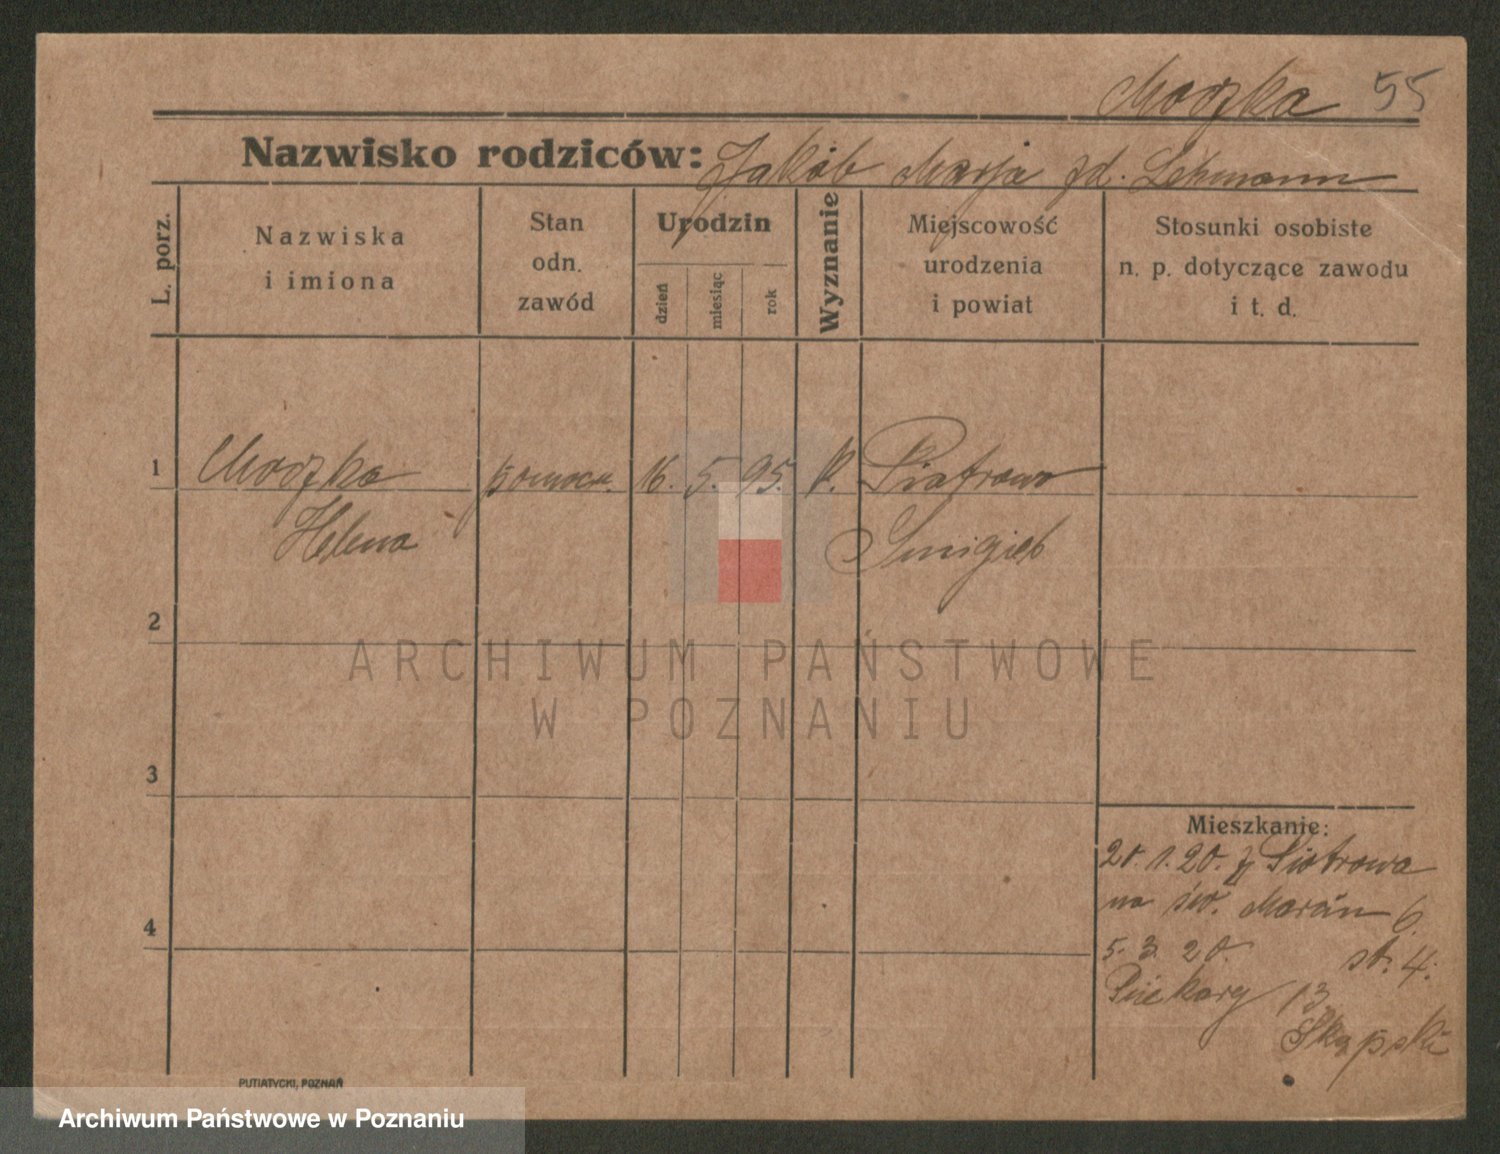 Moczka 55
Nazwisko rodziców: Jakób Marja zd. Lehmann
L. porz.
Nazwiska
i imiona
Stan
odn.
zawód
Urodzin
dzień
miesiąc
rok
Wyznanie
Miejscowość
urodzenia
i powiat
Stosunki osobiste
n. p. dotyczące zawodu
i t. d.
1 Moczka pomocn. 16. 5. 95. k. Piotrowo
Helena Śmigiel
2
ARCHIWUM PAŃSTWOWE
W POZNANIU
3
Mieszkanie:
20. 1. 20. z Piotrowa
na św. Marcin 6
4
5. 3. 20. st. 4.
Piekary 13
Skąpski
PUTIATYCKI, POZNAŃ
Archiwum Państwowe w Poznaniu